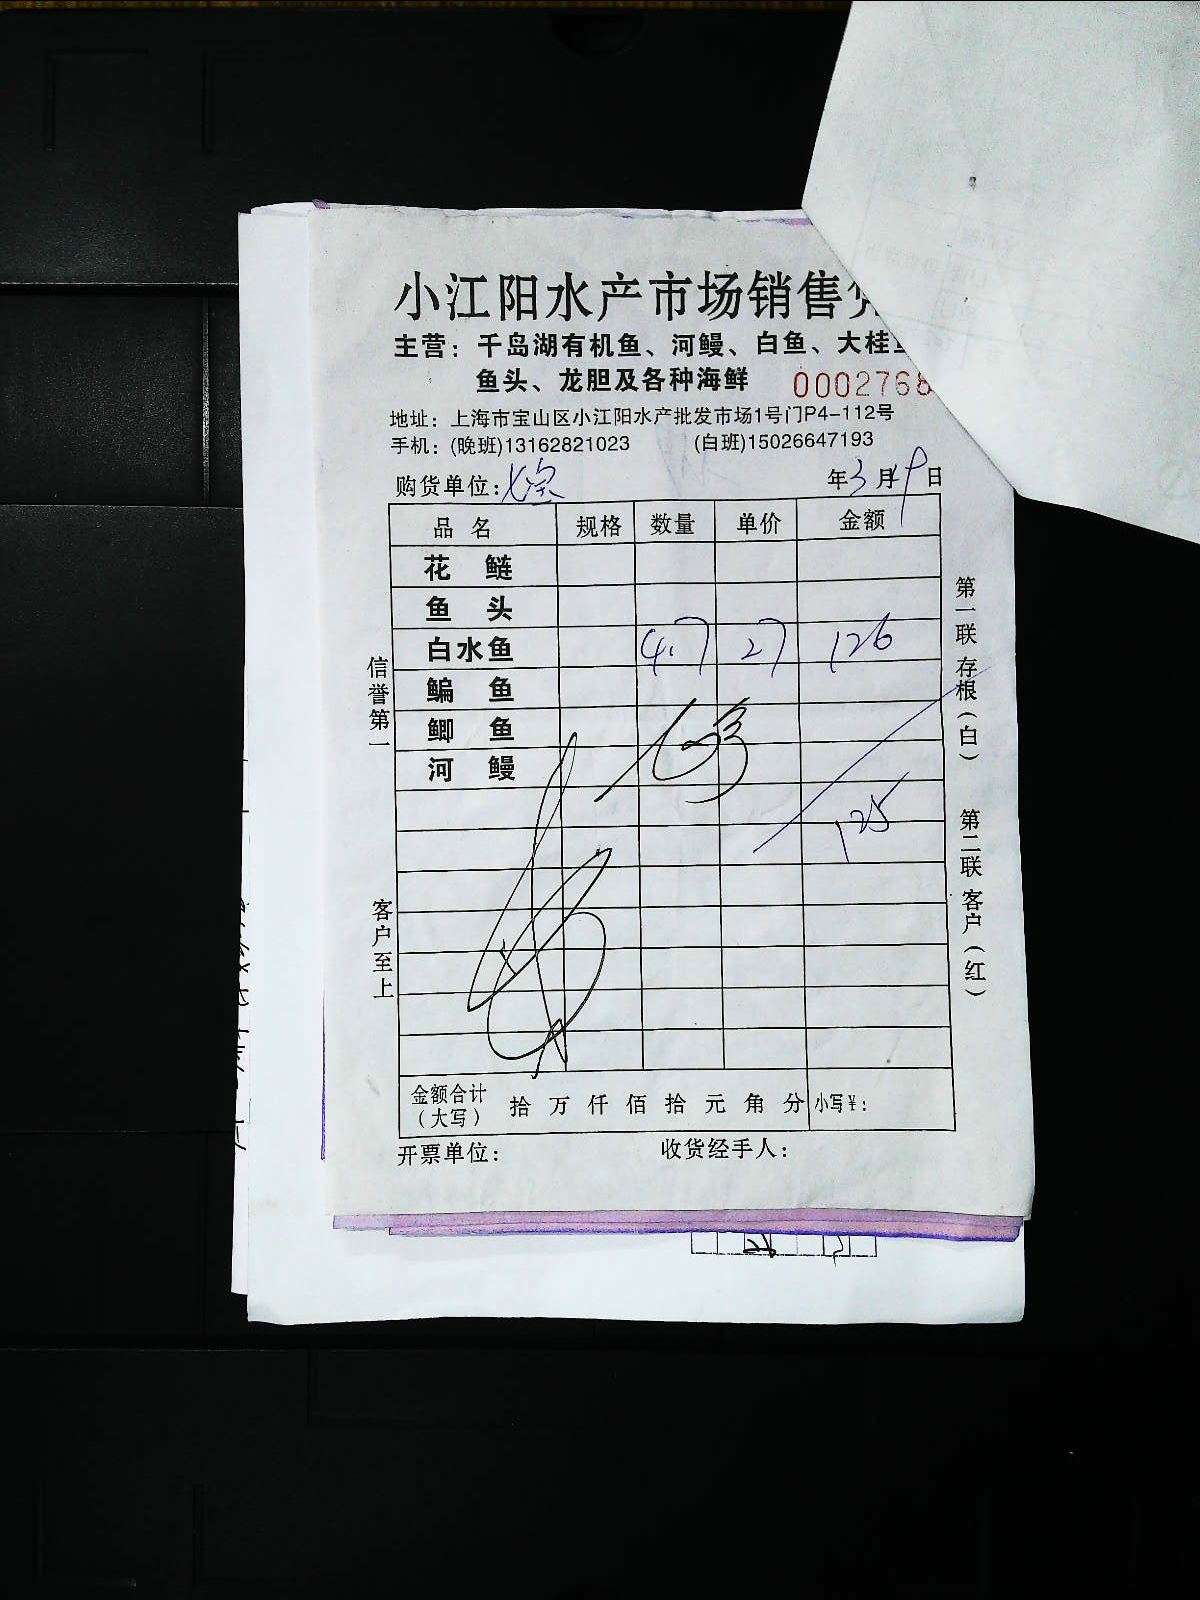 小江阳水产市场销售
主营：千岛湖有机鱼、河鳗、白鱼、大桂
鱼头、龙胆及各种海鲜 0002768
地址：上海市宝山区小江阳水产批发市场1号门P4-112号
手机：(晚班)13162821023 (白班)15026647193
购货单位：七宝 年3月19日
品名 规格 数量 单价 金额
花鲢
鱼头
白水鱼 4.7 27 126
鳊鱼
鲫鱼
河鳗
125
金额合计（大写） 拾万仟佰拾元角分 小写￥：
开票单位： 收货经手人：
信誉第一
客户至上
第一联存根（白）
第二联客户（红）